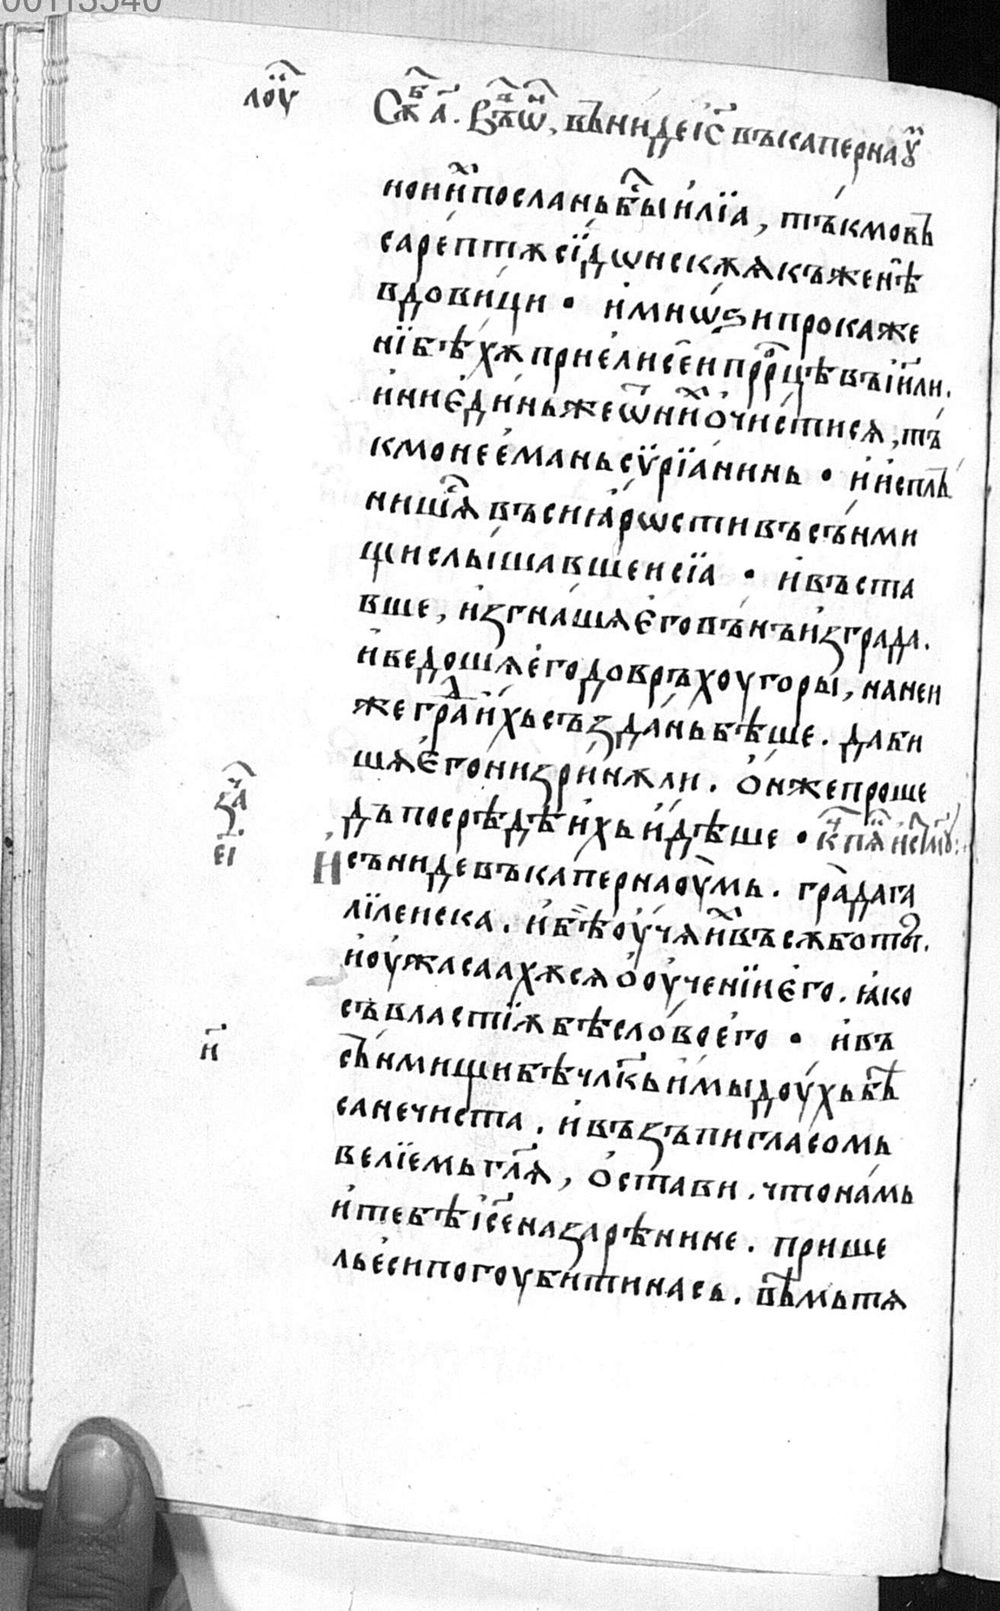 00113540
лоу҃
Сѫ҃ а҃. Въ ѡ҃, въниде і҃с въ капернаꙋ҃
нонⷩ҇ посланьбⷭ҇ы и҆лїа, тъкмовъ
сарептѫ сїдѡнскѫѧ къженѣ
вдовици • и҆мнѡѕи прокаже
нїи бѣхѫ при е҆лисеи прⷪ҇рцѣ въ і҆и҃ли.
и҆ниѐдиньже ѿ нⷯи ѻ҆чистисѧ, тъ
кмо нееманьсѵрїанинь • и҆ и҆спль
нишⷭ҇ѧ въси ꙗ҆рѡсти въсъими
щислышавшеи сїа • и҆ въста
вше, и҆ꙁгнашѧ е҆го вънъ иꙁграда.
и҆ведошѧ е҆го до връхоу горы, наней
же граⷣ и҆хь съꙁдань бѣше. даби
шѧ е҆го ниꙁринѫли. Ѻ҆нже проше
дъ посрѣдѣ и҆хь и҆дѣше •
ꙁаⷱ҇
еі
И҆съниде въкапернаоумь. града га
лїлеиска. и҆ бѣ оучѧ иⷯ въ сѫботы.
и҆оужасаахѫсѧ ѻ оученїи е҆го. ꙗ҆ко
съ властїѫ бѣ слово е҆го • и҆въ
и҃
съимищи бѣ чл҃кь и҆мы доухь бѣ
са нечиста. и҆ въꙁъпи гласомь
велїемь гл҃ѧ, ѻ҆стави. что намь
и҆тебѣ і҆с҃е наꙁарѣнине. прише
ль е҆си погоубити нась. вѣмь тѧ